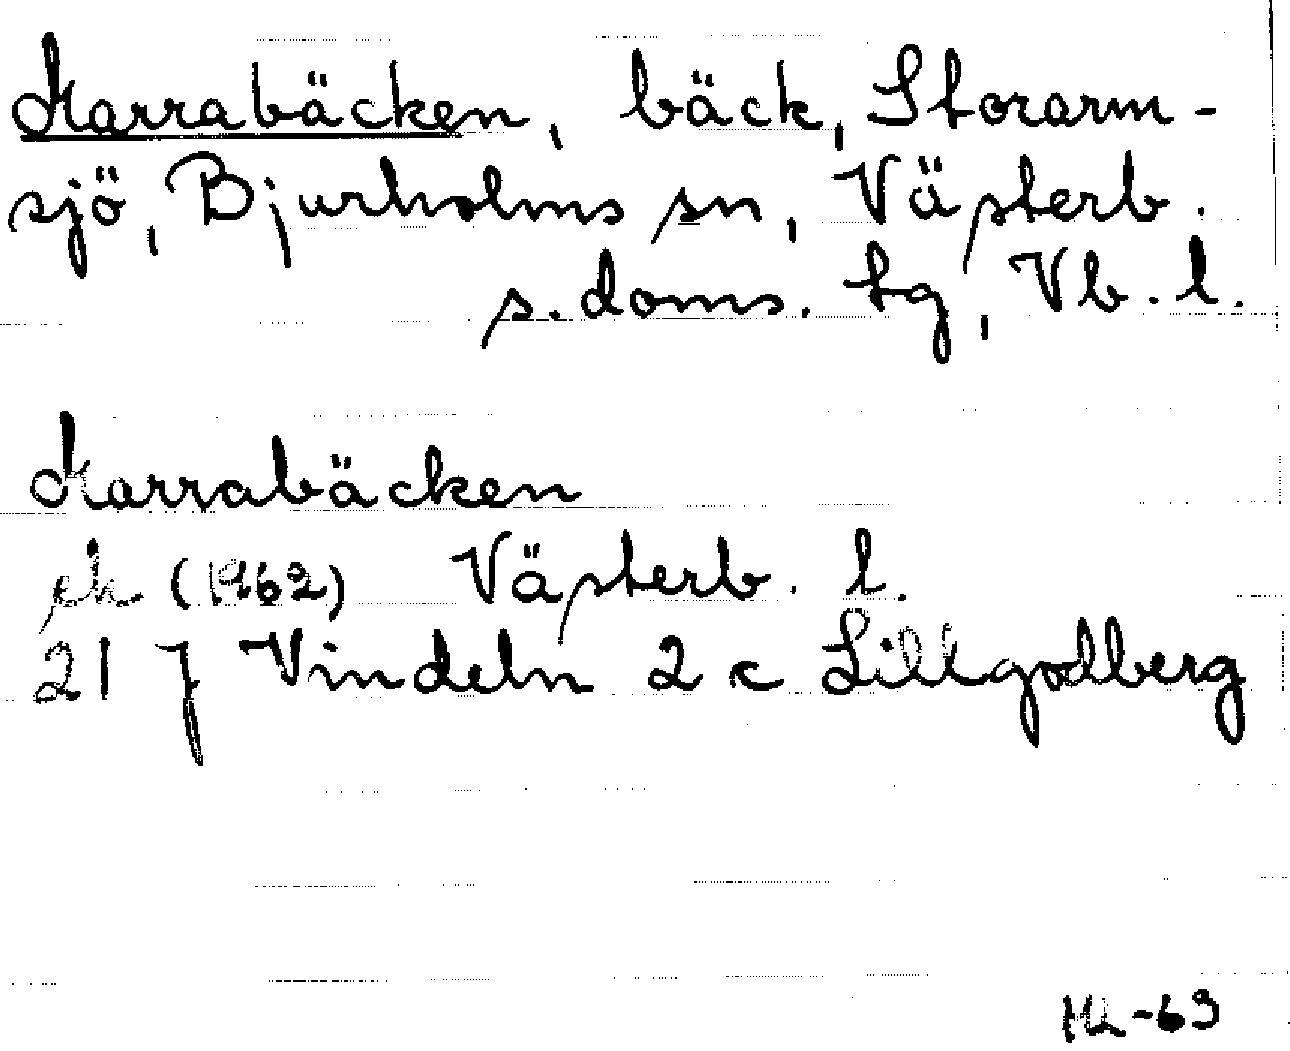 Harrabäcken, bäck, Storarm-
sjö, Bjurholms sn, Västerb.
s. doms. tg, Vb. l.
Harrabäcken
ek (1962) Västerb. l.
21 J Vindeln 2 c Lillgodberg
-63